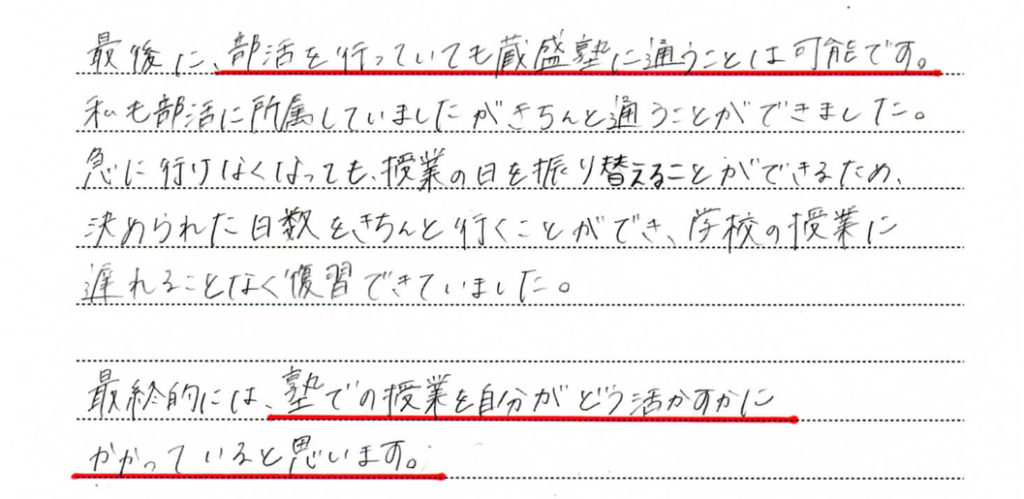 最後に、部活を行っていても蔵盛塾に通うことは可能です。
私も部活に所属していましたがきちんと通うことができました。
急に行けなくなっても、授業の日を振り替えることができるため、
決められた日数をきちんと行くことができ、学校の授業に
遅れることなく復習できていました。
最終的には、塾での授業を自分がどう活かすかに
かかっていると思います。